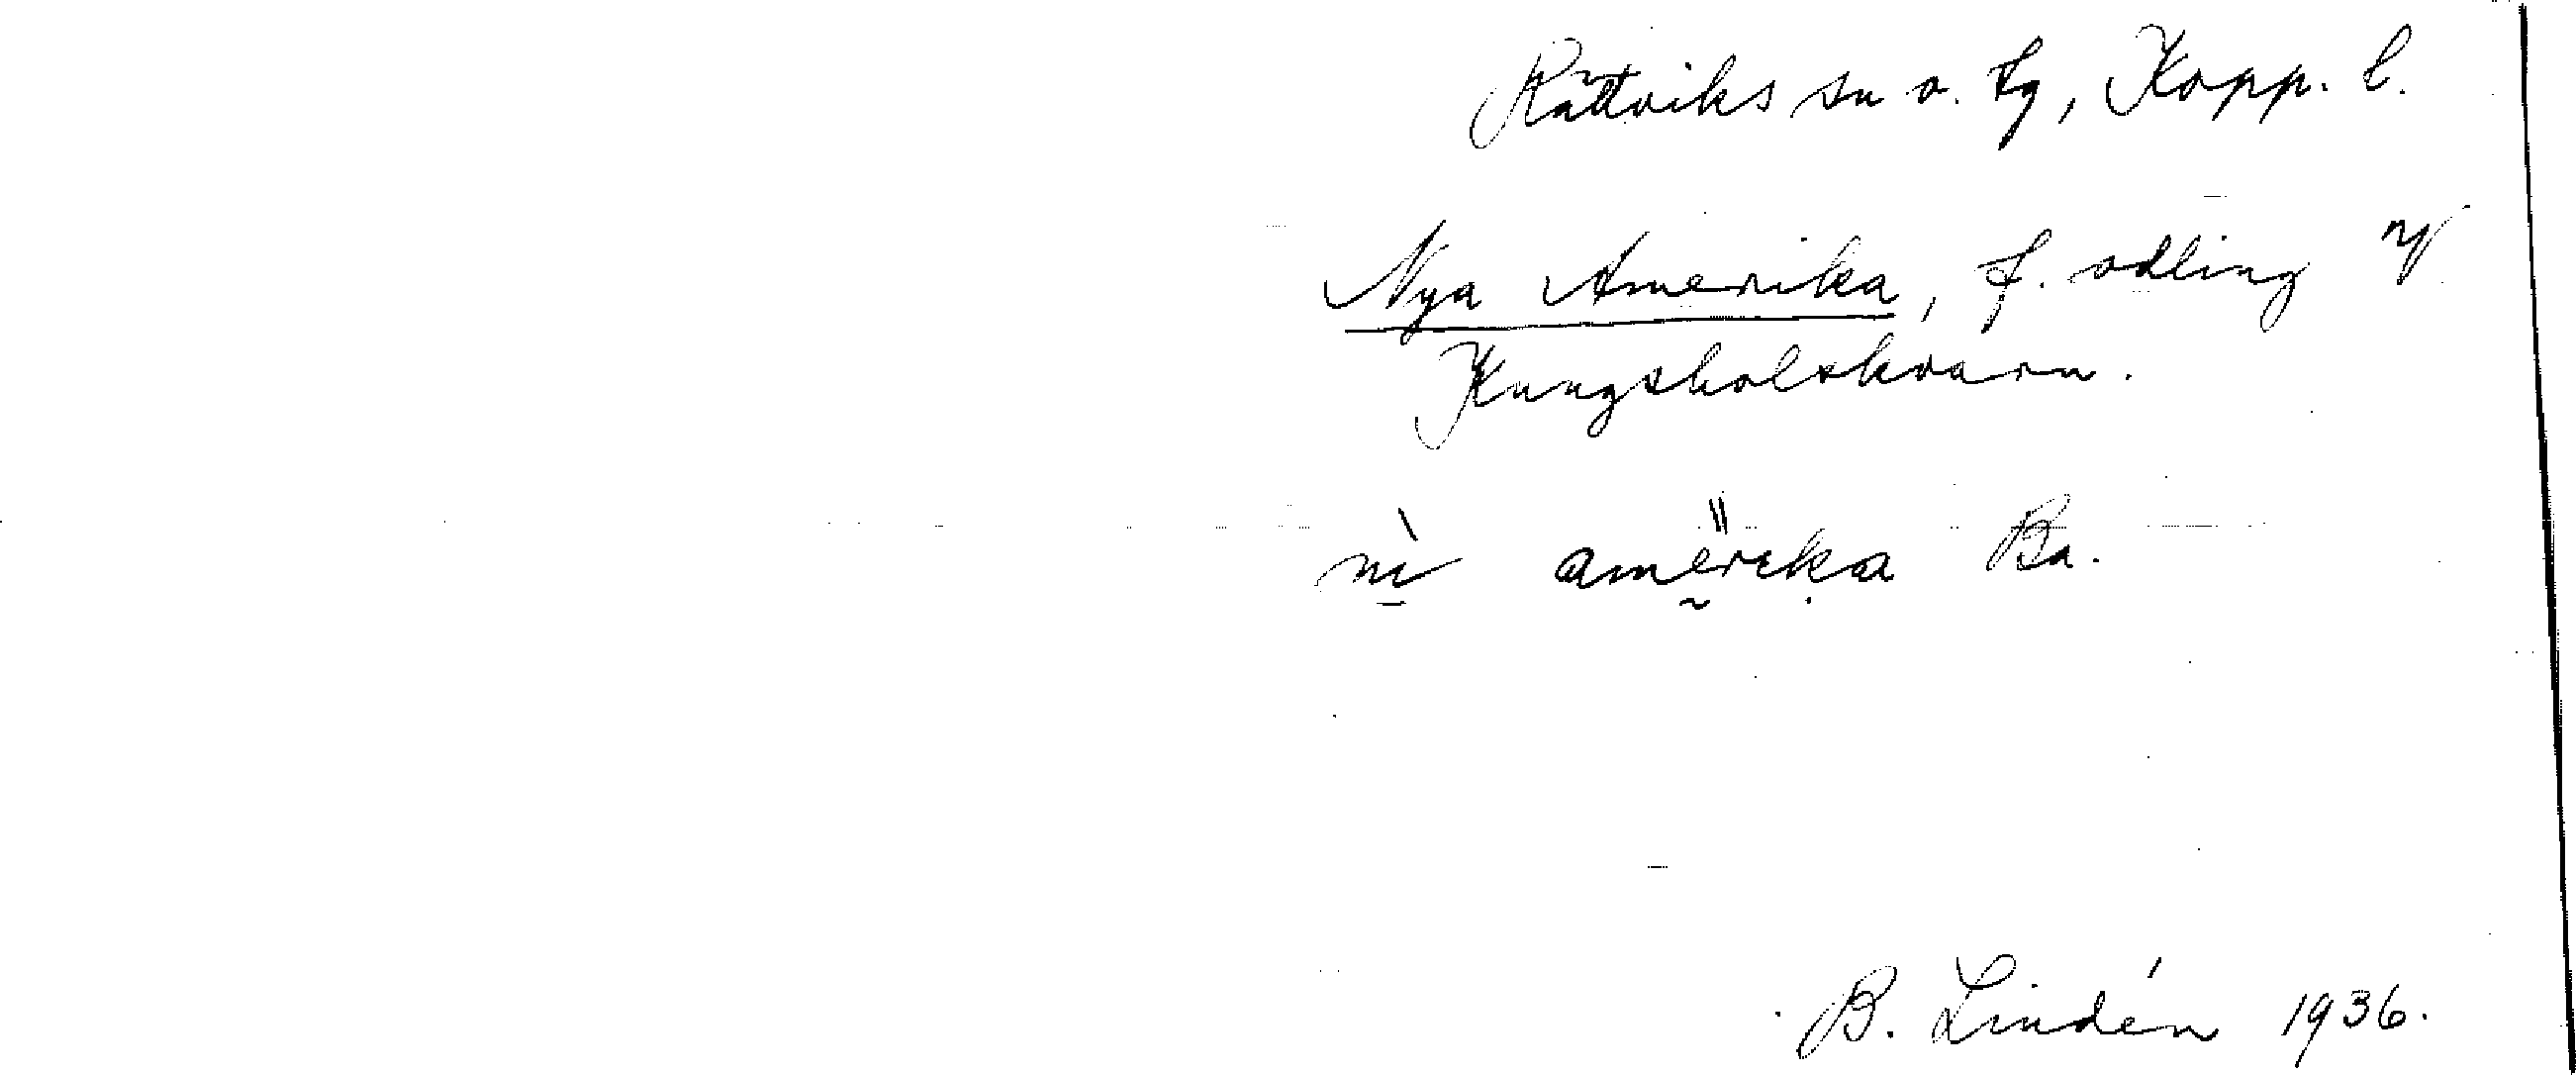 Rättviks sn o. tg, Kopp. l.
Nya Amerika, f. odling
Kungsholskvarn.
amerika Ba.
B. Lindén 1936.